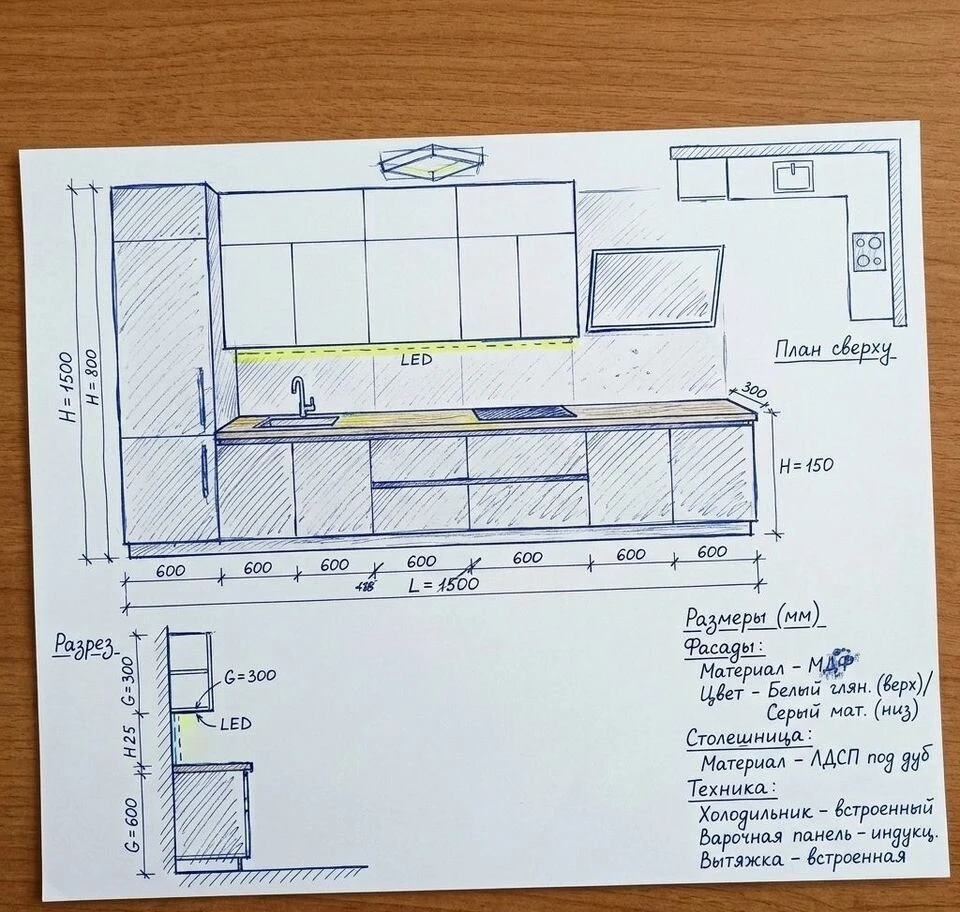 План сверху
LED
300
H=1500
H=800
H=150
600 600 600 600 600 600 600
L = 1500
Разрез
G=300
G=300
LED
H25
G=600
Размеры (мм)
Фасады:
Материал – МДФ
Цвет – Белый глян. (верх)/
Серый мат. (низ)
Столешница:
Материал – ЛДСП под дуб
Техника:
Холодильник – встроенный
Варочная панель – индукц.
Вытяжка – встроенная